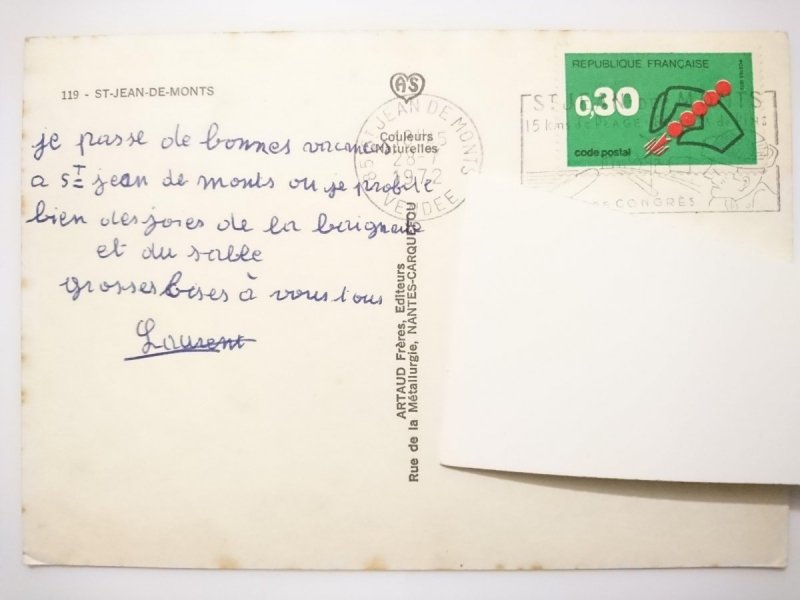 119 - ST-JEAN-DE-MONTS
je passe de bonnes vacances
a St jean de monts ou je profite
bien des joies de la baignade
et du sable
grosses bises à vous tous
Laurent
AS
Couleurs
Naturelles
ARTAUD Frères, Editeurs
Rue de la Métallurgie, NANTES-CARQUEFOU
85 ST JEAN DE MONTS
28-7
1972
VENDEE
REPUBLIQUE FRANÇAISE
0,30
code postal
ST JEAN DE MONTS
15 kms de PLAGE
CONGRÈS